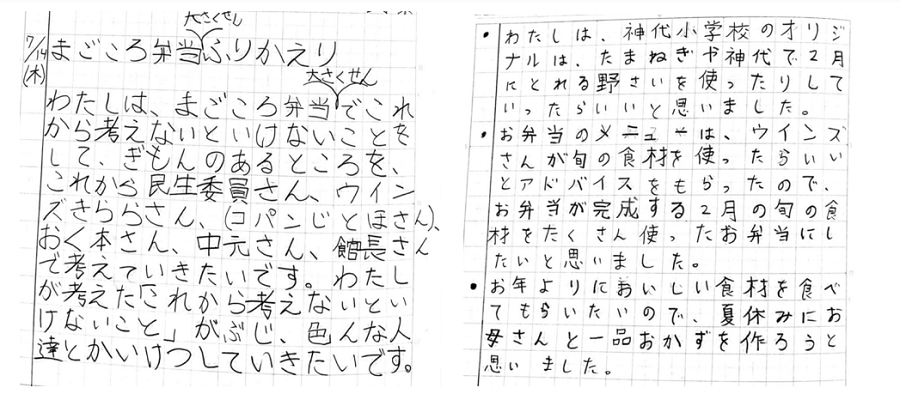 大さくせん
7/14
(木)
まごころ弁当ふりかえり
大さくせん
わたしは、まごころ弁当でこれ
から考えないといけないことを
して、ぎもんのあるところを、
これから民生委員さん、ウイン
ズきららさん、(コパンじとほさん)、
おく本さん、中元さん、館長さん
で考えていきたいです。わたし
が考えた「これから考えないとい
けないこと」がぶじ、色んな人
達とかいけつしていきたいです。
・わたしは、神代小学校のオリジ
ナルは、たまねぎや神代で2月
にとれる野さいを使ったりして
いったらいいと思いました。
・お弁当のメニューは、ウインズ
さんが旬の食材を使ったらいい
とアドバイスをもらったので、
お弁当が完成する2月の旬の食
材をたくさん使ったお弁当にし
たいと思いました。
・お年よりにおいしい食材を食べ
てもらいたいので、夏休みにお
母さんと一品おかずを作ろうと
思いました。